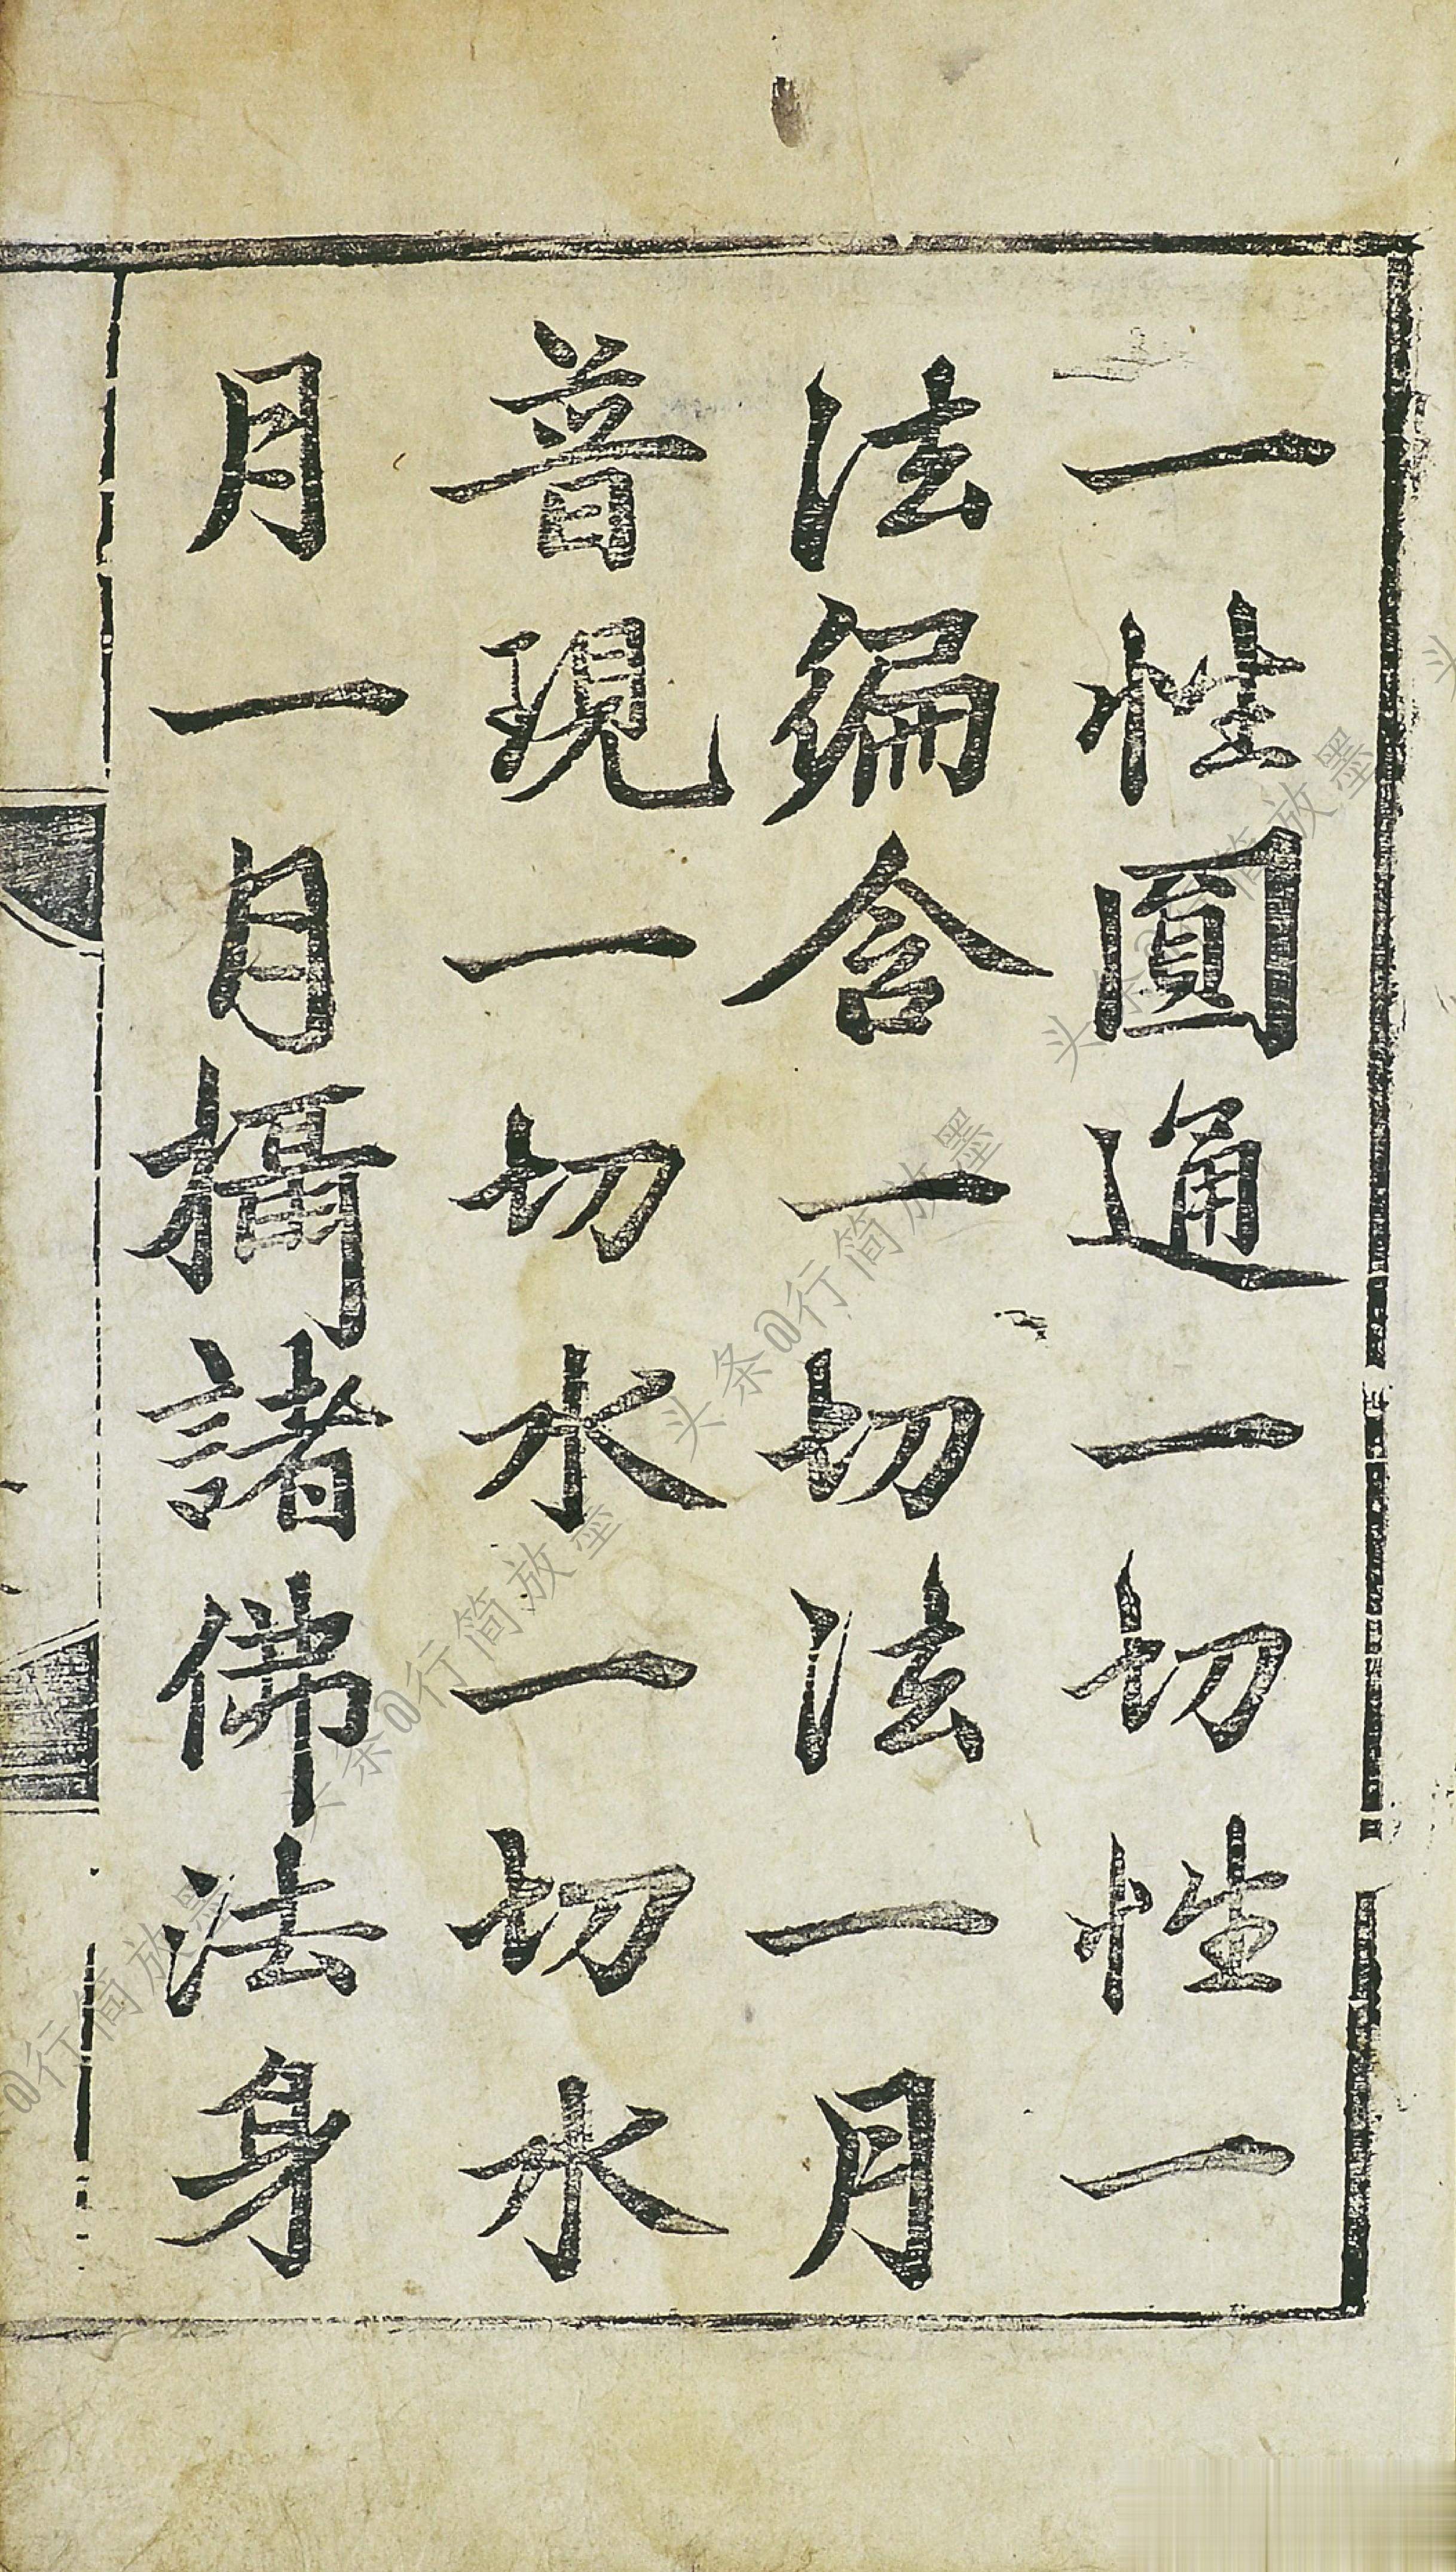 一性圓通一切性一
法徧含一切法一月
普現一切水一切水
月一月攝諸佛法身
头条@行简放墨
头条@行简放墨
头条@行简放墨
@行简放墨